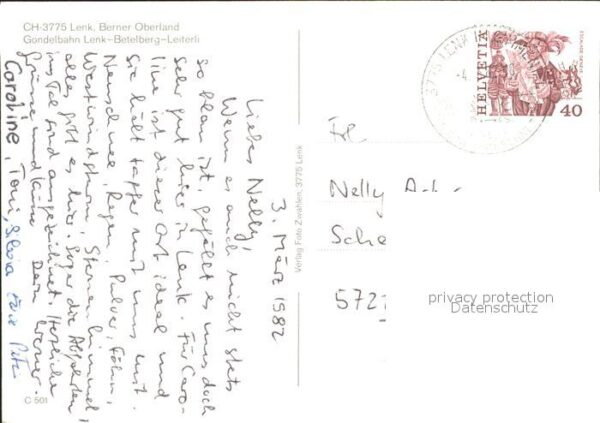 CH-3775 Lenk, Berner Oberland
Gondelbahn Lenk-Betelberg-Leiterli
3. März 1982
Liebes Nelly!
Wenn es auch nicht stets
so blau ist, gefällt es uns doch
sehr gut hier in Lenk. Für Caro-
line ist dieser Ort ideal und
sie hält tapfer mit uns mit.
Neuschnee, Regen, Pulver, Föhn,
Westwindsturm, Sternenhimmel,
alles gibt es hier. Sogar die Abfahrten
ins Tal sind ausgezeichnet. Herzliche
Grüsse und
Dein Werner.
Caroline, Toni, Silvia
C 501
Verlag Foto Zwahlen, 3775 Lenk
3775 LENK
HELVETIA
ESCALADE GENÈVE
40
Frl.
Nelly
Sche
572
privacy protection
Datenschutz